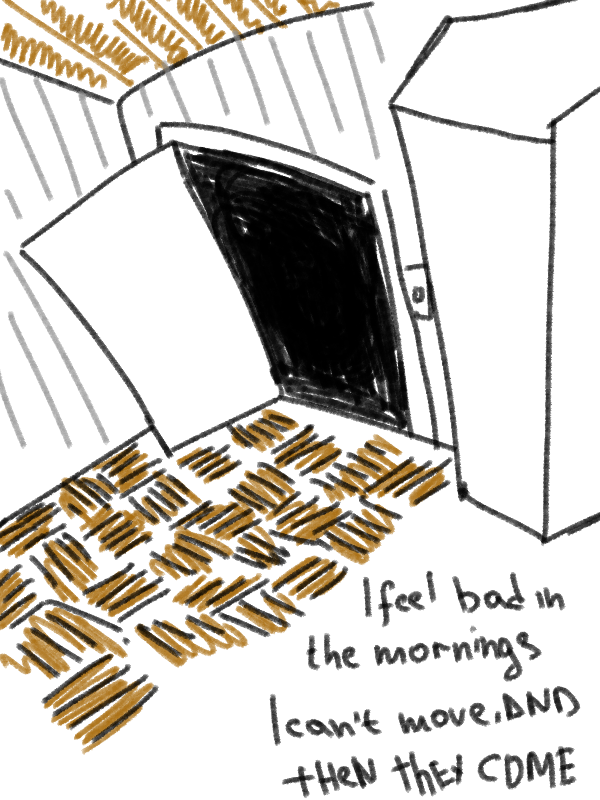 I feel bad in
the mornings
I can't move. AND
tHEN thEY COME